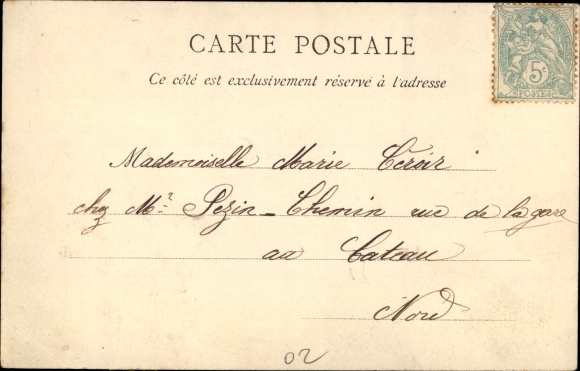 CARTE POSTALE
Ce côté est exclusivement réservé à l'adresse
5c
POSTES
Mademoiselle Marie Ceroir
chez Mr. Pezin-Chemin rue de la gare
au Cateau
Nord
02